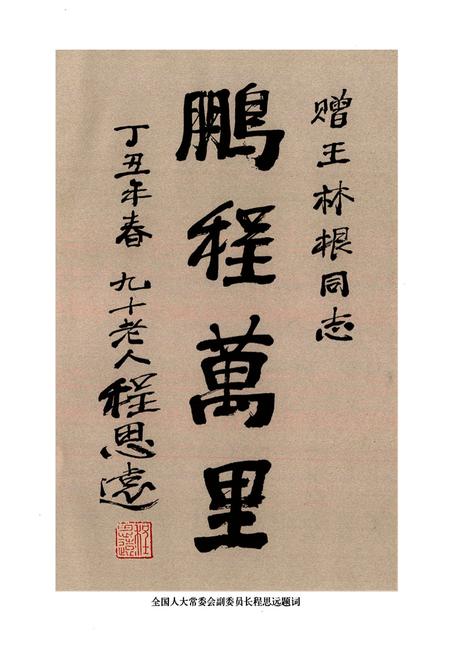 赠王林根同志
鹏程萬里
丁丑年春 九十老人程思遠
程思遠
全国人大常委会副委员长程思远题词